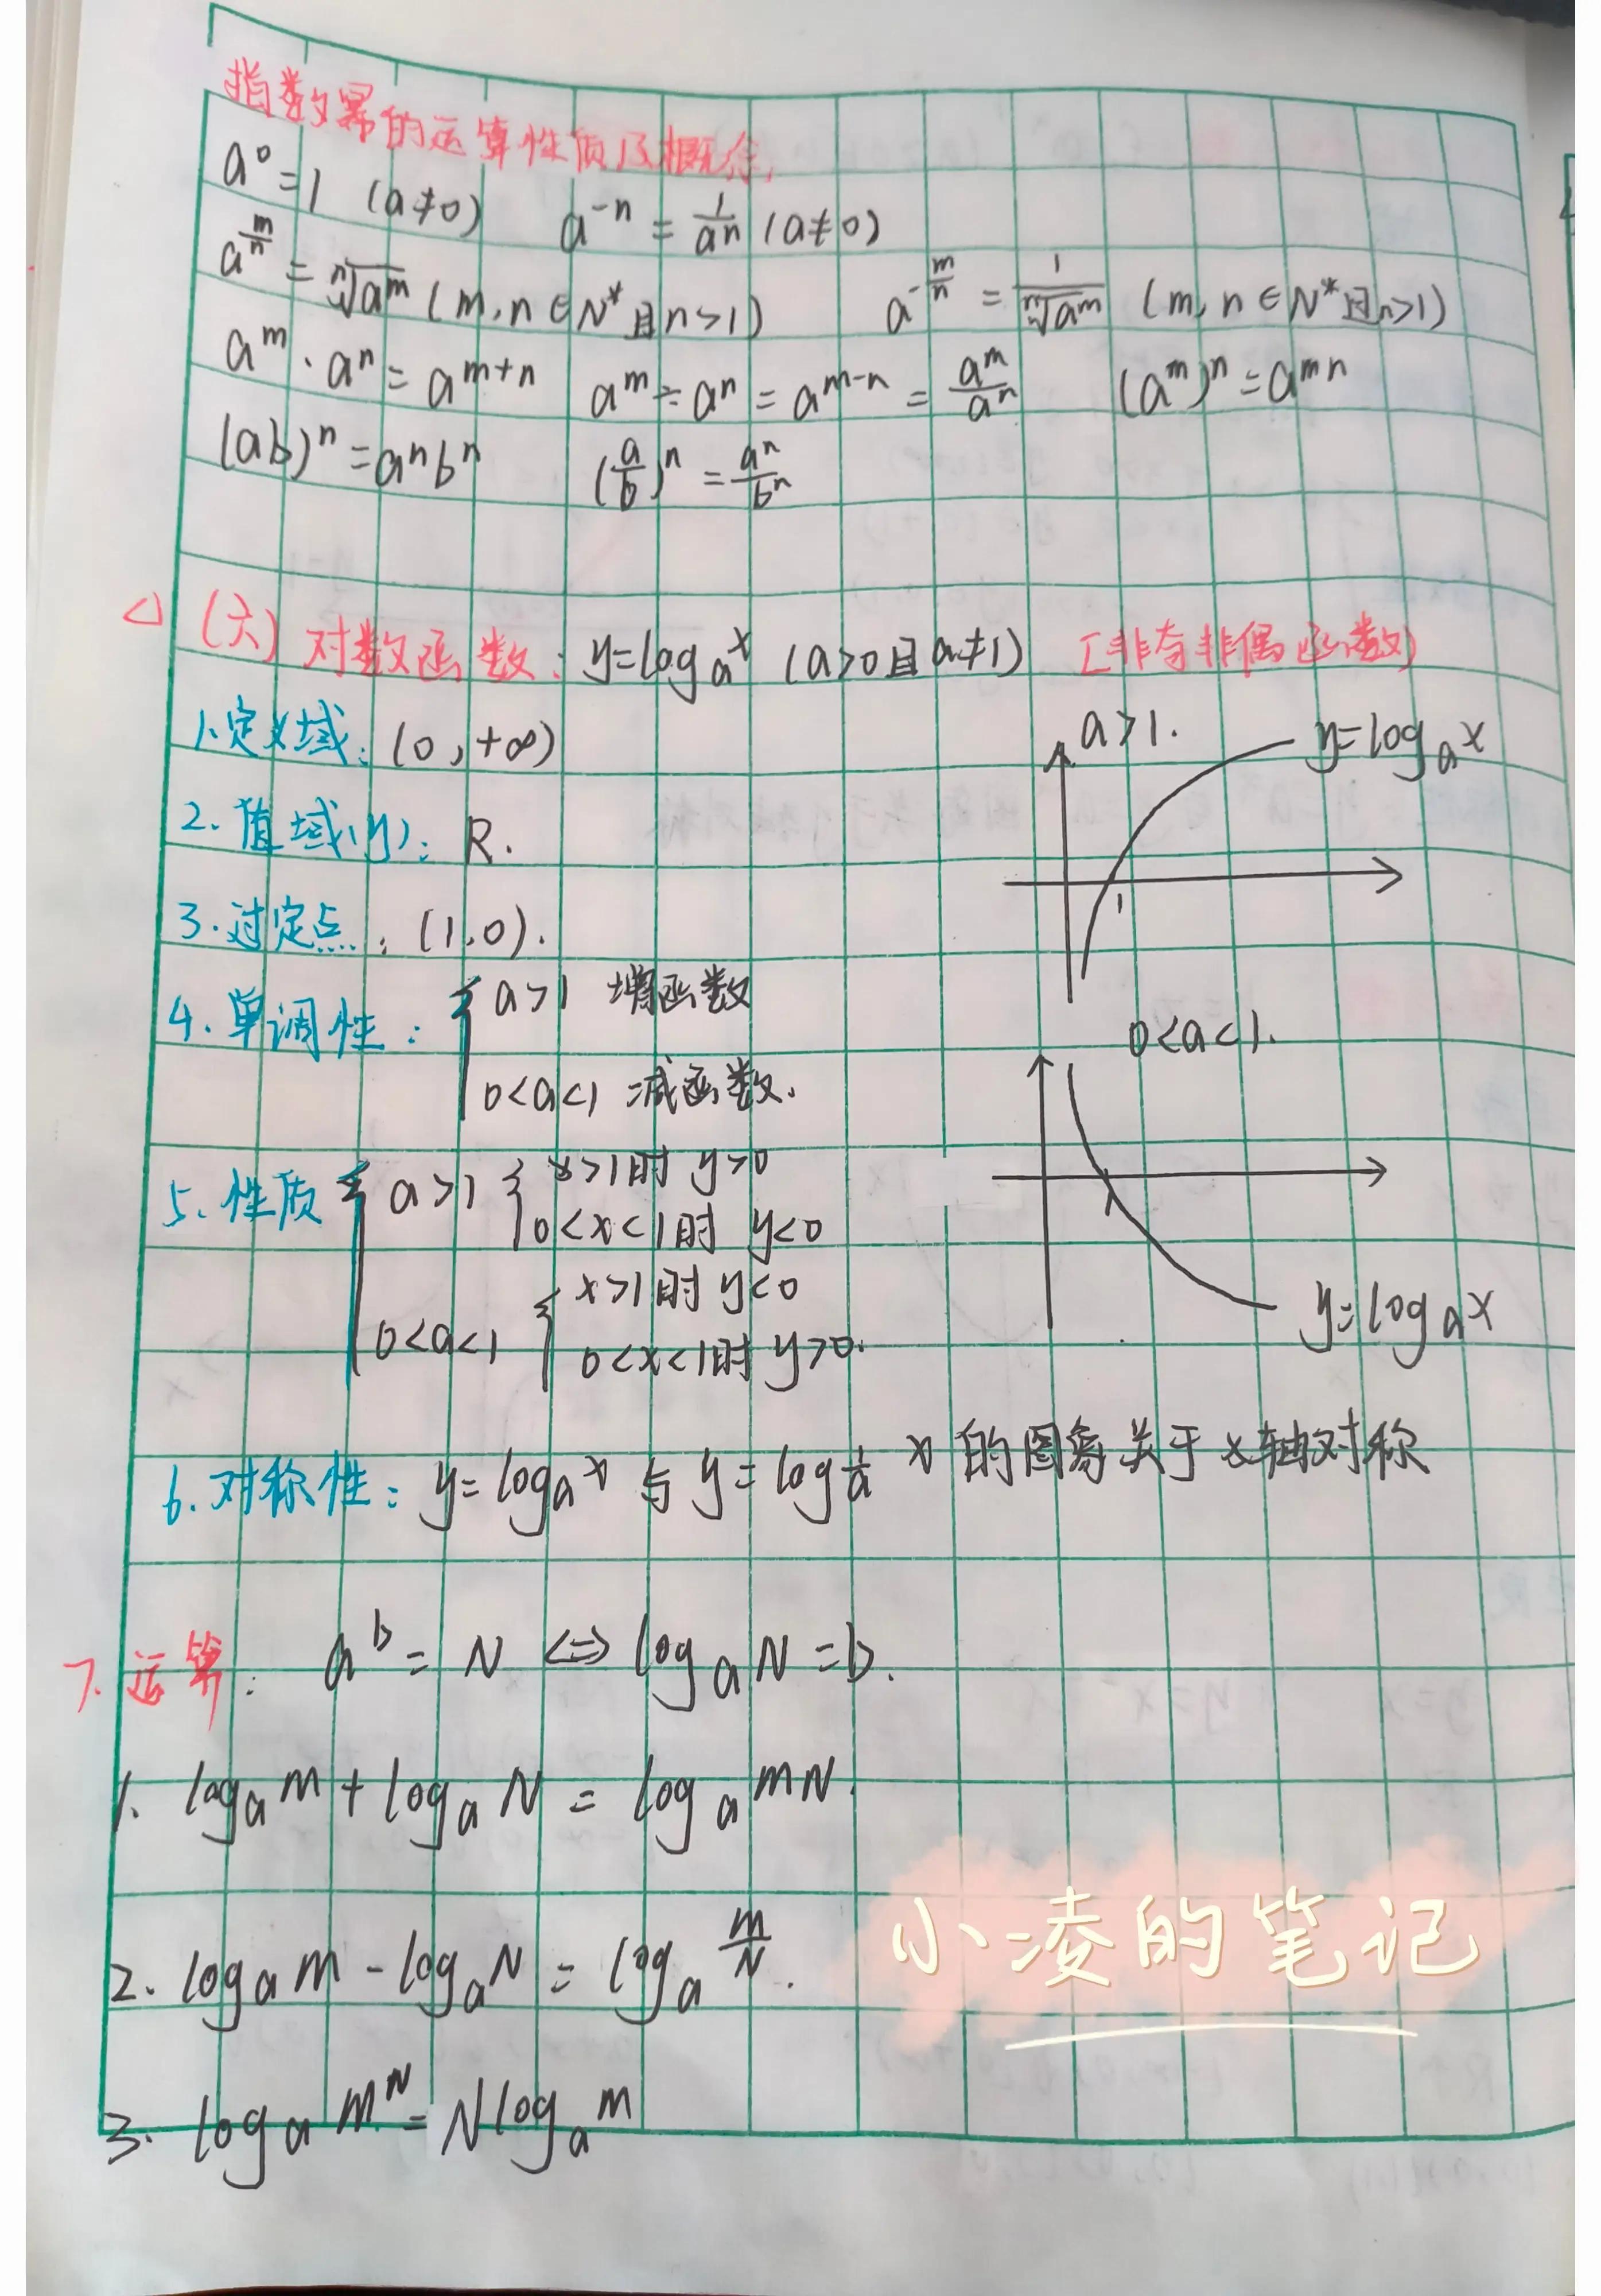 指数幂的运算性质及概念
a⁰=1 (a≠0) a⁻ⁿ=1/aⁿ (a≠0)
a^(m/n)=ⁿ√(a^m) (m,n∈N*且n>1) a^(-m/n)=1/ⁿ√(a^m) (m,n∈N*且n>1)
a^m·a^n=a^(m+n) a^m÷a^n=a^(m-n)=a^m/a^n (a^m)^n=a^(mn)
(ab)^n=a^n b^n (a/b)^n=a^n/b^n
(六)对数函数: y=logₐx (a>0且a≠1) [非奇非偶函数)
1.定义域:(0,+∞)
a>1. y=logₐx
2.值域(y):R.
3.过定点:(1,0).
1
4.单调性:{a>1 增函数
0<a<1 减函数.
0<a<1.
5.性质{a>1{x>1时 y>0
0<x<1时 y<0
0<a<1{x>1时 y<0
0<x<1时 y>0.
1
y=logₐx
6.对称性:y=logₐx与y=log_(1/a) x的图象关于x轴对称
7.运算: a^b=N⇔logₐN=b.
1. logₐm+logₐN=logₐmN.
2. logₐm-logₐN=logₐ(m/N).
小凌的笔记
3. logₐm^N=Nlogₐm